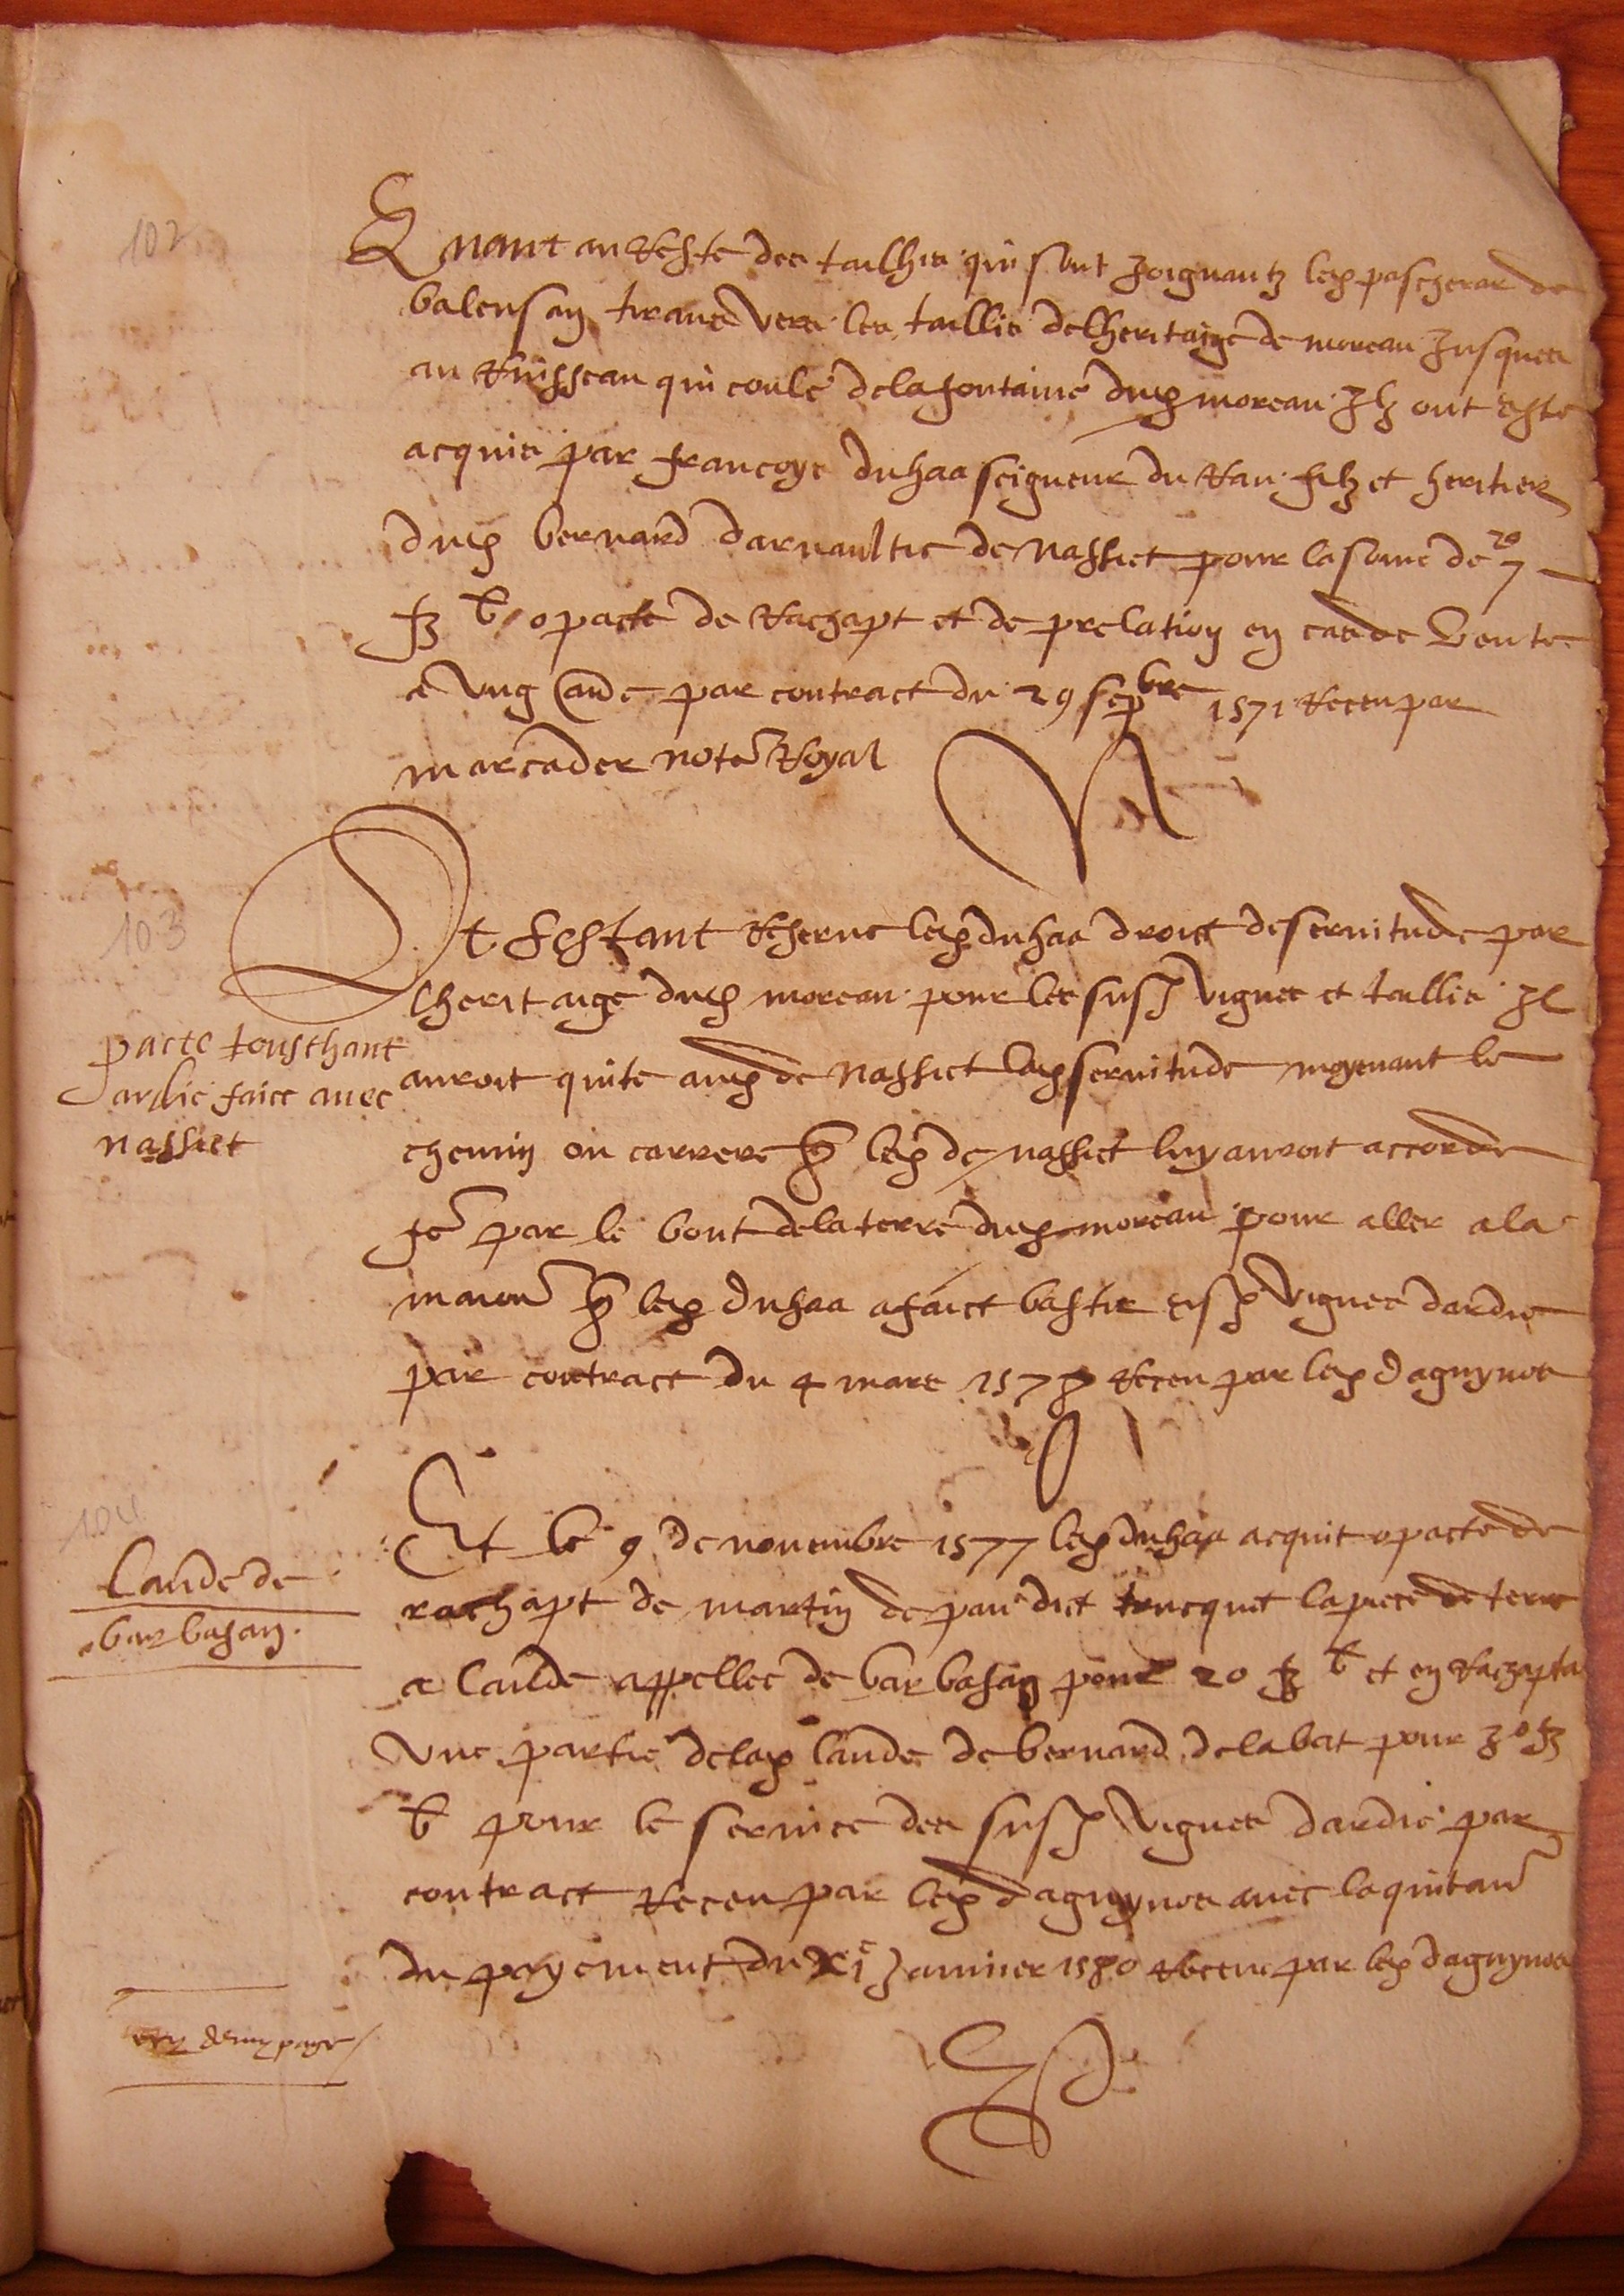 102
Quant au Reste des tailhis qui sont Joignantz led pascherar de
balensan tirans vers les taillis delheritaige de moreau Jusques
au Ruisseau qui coule delafontaine dud moreau Ilz ont este
acquis par francoys duhaa seigneur du Rau filz et heritier
dud bernard darnaultic de Nassiet pour lasome de
fz b o pacte de Rachapt et de prelation en cas de Vente
a Ung Cande par contract du 29 sepbre 1571 Receu par
marcader note Royal
103
Et sestant Reserve led duhaa droict deservitude par
lheritaige dud moreau pour les susd vignes et taillis Il
pacte tousthant
auroit quite aud de Nassiet lad servitude moyenant le
ardic faict avec
nassiet
chemin ou carrere q led de Nassiet luy auroit accorde
par le bout delaterre dud moreau pour aller ala
maison q led duhaa afaict bastir esd vignes dardic
par contract du 4 mars 1578 Receu par led daguynos
104
Et le 9 de novembre 1577 led duhaa acquit o pacte de
Lande de
rachapt de martin de pau dict trucquet lapiece de terre
barbasan
a lande appellee de barbasan pour 20 fz b et en Rachapta
une partie delad lande de bernard delabat pour 30 fz
b pour le service des susd vignes dardic par
contract Receu par led daguynos avec laquitan
du payement du XIe Janvier 1580 Receue par led daguynos
demy page